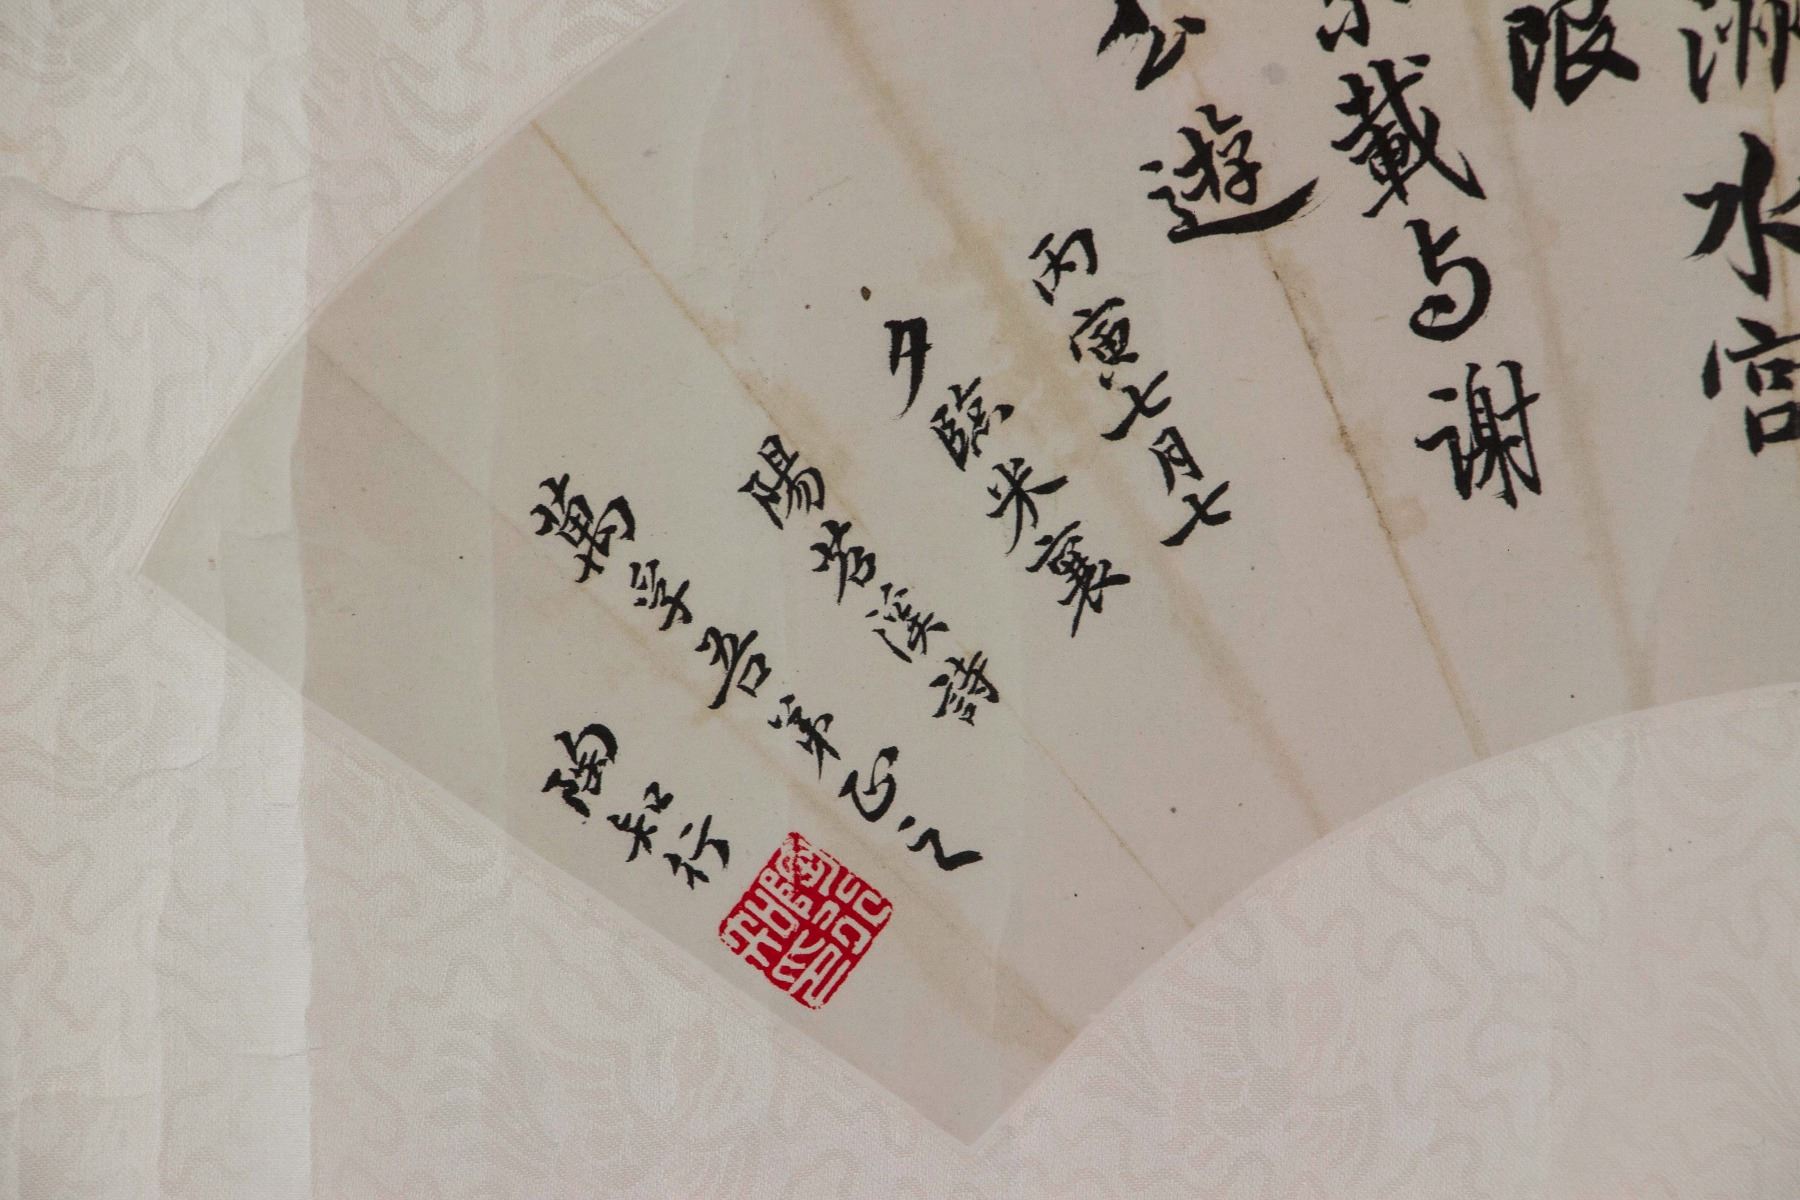 水宫
限
載与謝
公遊
丙寅七月七
夕臨米襄
陽苕溪詩
萬宇吾弟正之
陶知行